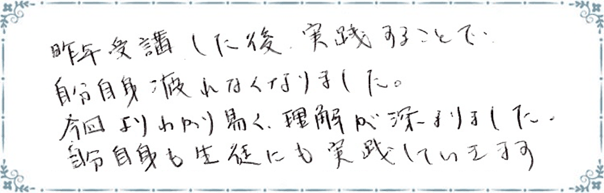 昨年受講した後、実践することで、
自分自身疲れなくなりました。
今回よりわかり易く、理解が深まりました。
自分自身も生徒にも実践していきます